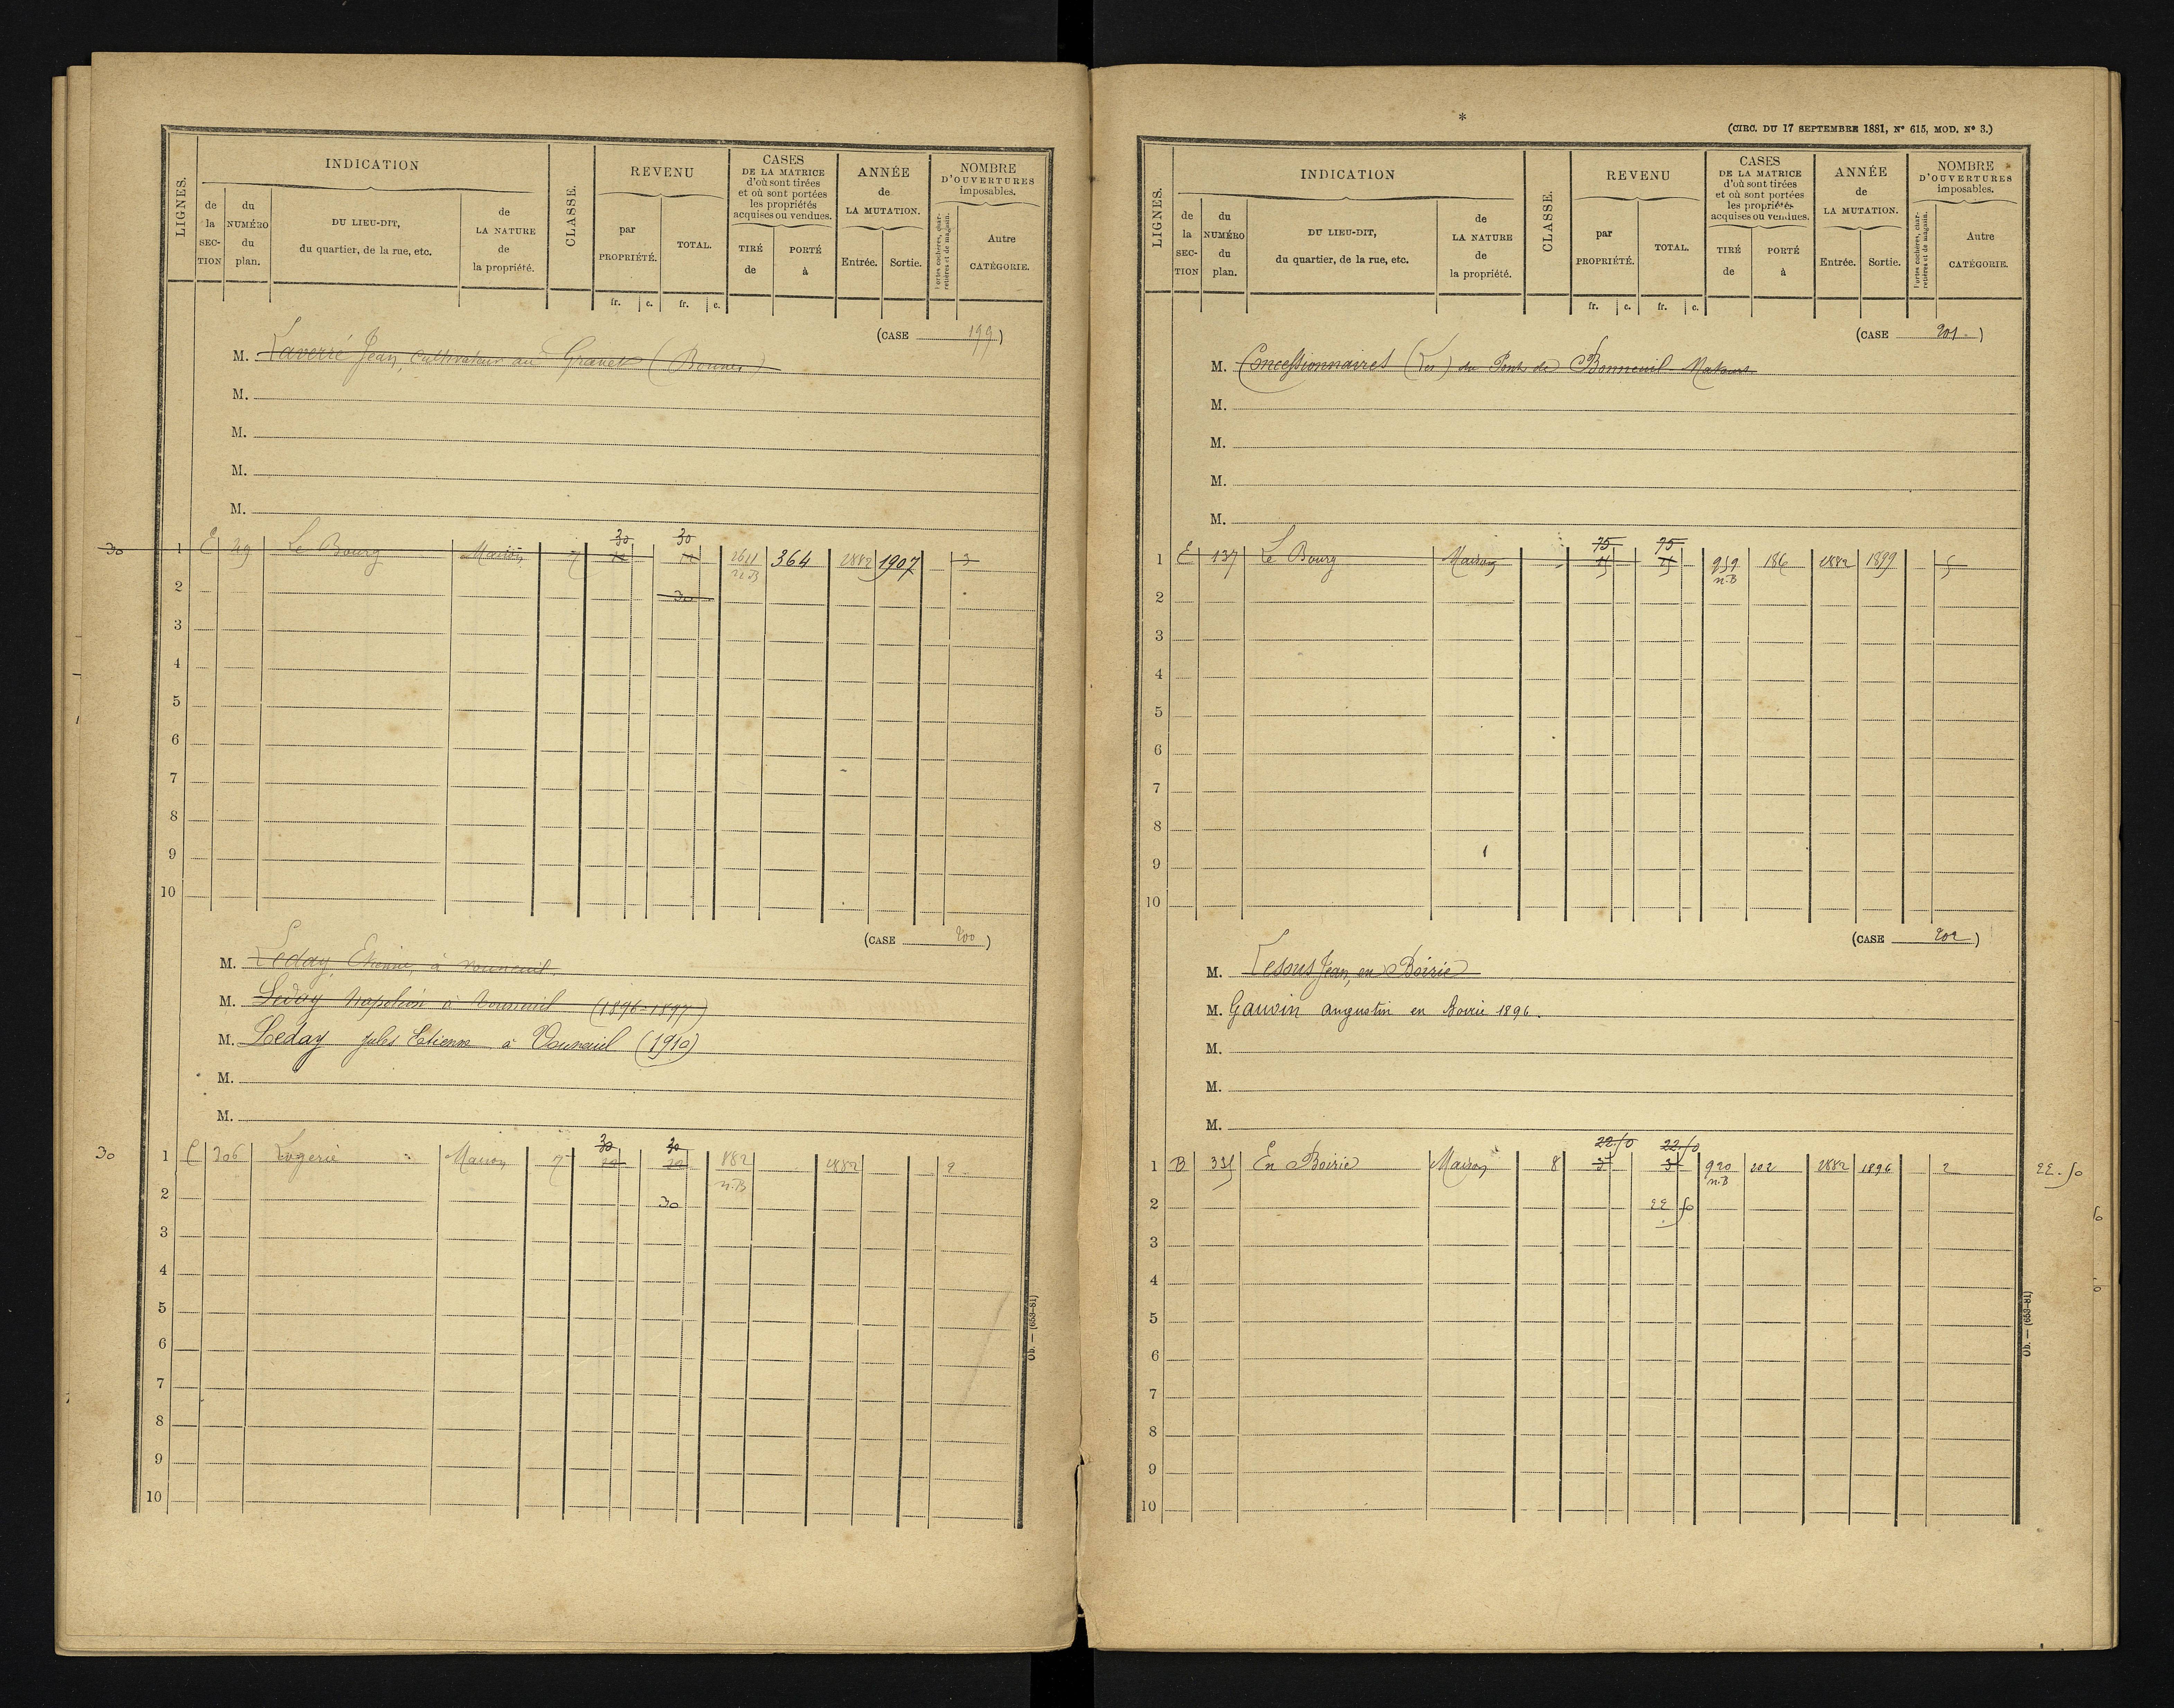 LIGNES.
INDICATION
de la SEC-TION
du NUMÉRO du plan.
DU LIEU-DIT, du quartier, de la rue, etc.
de LA NATURE de la propriété.
CLASSE.
REVENU
par PROPRIÉTÉ.
TOTAL.
CASES DE LA MATRICE d'où sont tirées et où sont portées les propriétés acquises ou vendues.
TIRÉ de
PORTÉ à
ANNÉE de LA MUTATION.
Entrée. Sortie.
NOMBRE D'OUVERTURES imposables.
Portes cochères, charretières et de magasin.
Autre CATÉGORIE.
fr. c. fr. c.
(CASE 199)
M. Laverré Jean, Cultivateur au
M.
M.
M.
M.
30 1 E 29 Le Bourg Maison 7 30 30 364 1882 1907 3
2 30
3
4
5
6
7
8
9
10
(CASE 200)
M. Leday Etienne, à Vouneuil
M. Leday Napoléon à Vouneuil (1896-1897)
M. Leday Jules Etienne à Vouneuil (1910)
M.
M.
30 1 C 206 Logerie Maison 7 30 30 882 n.B 1882 2
2 30
3
4
5
6
7
8
9
10
Ob. — (653-81)
*
(CIRC. DU 17 SEPTEMBRE 1881, N° 615, MOD. N° 3.)
LIGNES.
INDICATION
de la SEC-TION
du NUMÉRO du plan.
DU LIEU-DIT, du quartier, de la rue, etc.
de LA NATURE de la propriété.
CLASSE.
REVENU
par PROPRIÉTÉ.
TOTAL.
CASES DE LA MATRICE d'où sont tirées et où sont portées les propriétés acquises ou vendues.
TIRÉ de
PORTÉ à
ANNÉE de LA MUTATION.
Entrée. Sortie.
NOMBRE D'OUVERTURES imposables.
Portes cochères, charretières et de magasin.
Autre CATÉGORIE.
fr. c. fr. c.
(CASE 201.)
M. Concessionnaires (Les) du Pont de Bonneuil-Matours
M.
M.
M.
M.
1 E 137 Le Bourg Maison 75 75 959 n.B 186 1882 1899 5
2
3
4
5
6
7
8
9
10
(CASE 202)
M. Jean, en Boirie
M. Gauvin augustin en Boirie 1896.
M.
M.
M.
1 B 335 En Boirie Maison 8 22.50 22.50 920 n.B 202 1882 1896 2 22.50
2 22 50
3
4
5
6
7
8
9
10
Ob. — (653-81)